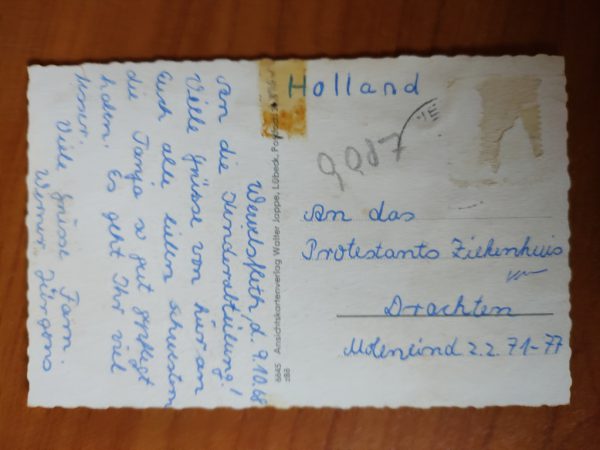 Wewelsfleth, d. 9.10.68
An die Kinderabteilung!
Viele Grüsse von hier an
Euch alle lieben Schwestern
die Tanja so gut gepflegt
haben. Es geht Ihr viel
Viele Grüsse Fam.
Werner Jürgens
6645 Ansichtskartenverlag Walter Joppe, Lübeck,
Holland
An das
Protestants Ziekenhuis
Drachten
Moleneind z.z. 71-77